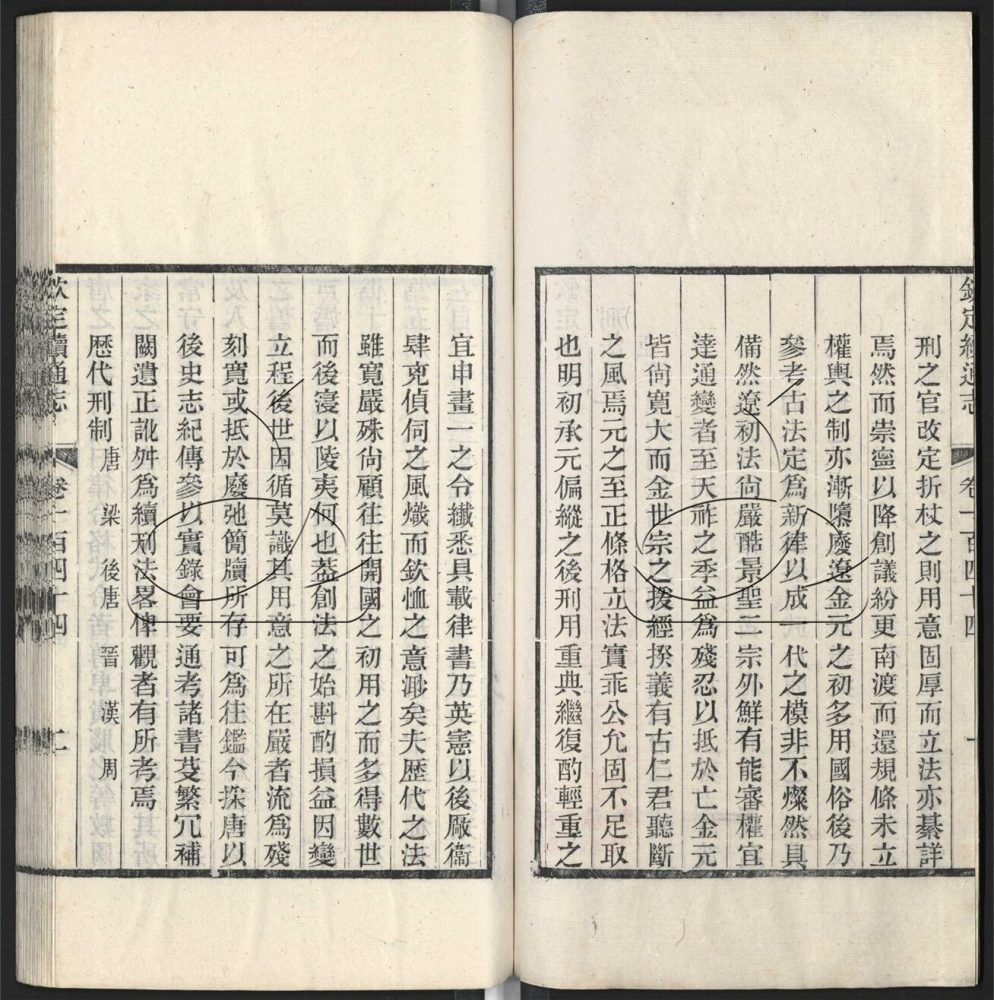 欽定續通志 卷一百四十四 一
刑之官改定折杖之則用意固厚而立法亦綦詳
焉然而崇寧以降創議紛更南渡而還規條未立
權輿之制亦漸隳廢遼金元之初多用國俗後乃
參考古法定為新律以成一代之模非不燦然具
備然遼初法尙嚴酷景聖二宗外鮮有能審權宜
達通變者至天祚之季益爲殘忍以抵於亡金元
皆尙寬大而金世宗之援經揆義有古仁君聽斷
之風焉元之至正條格立法實乖公允固不足取
也明初承元偏縱之後刑用重典繼復酌輕重之
宜申畫一之令纖悉具載律書乃英憲以後厰衞
肆克偵伺之風熾而欽恤之意渺矣夫歷代之法
雖寬嚴殊尙顧往往開國之初用之而多得數世
而後寖以陵夷何也葢創法之始斟酌損益因變
立程後世因循莫識其用意之所在嚴者流爲殘
刻寬或抵於廢弛簡牘所存可爲往鑑今採唐以
後史志紀傳參以實錄會要通考諸書芟繁冗補
闕遺正訛舛爲續刑法畧俾觀者有所考焉
歷代刑制 唐 梁 後唐 晉 漢 周
欽定續通志 卷一百四十四 二